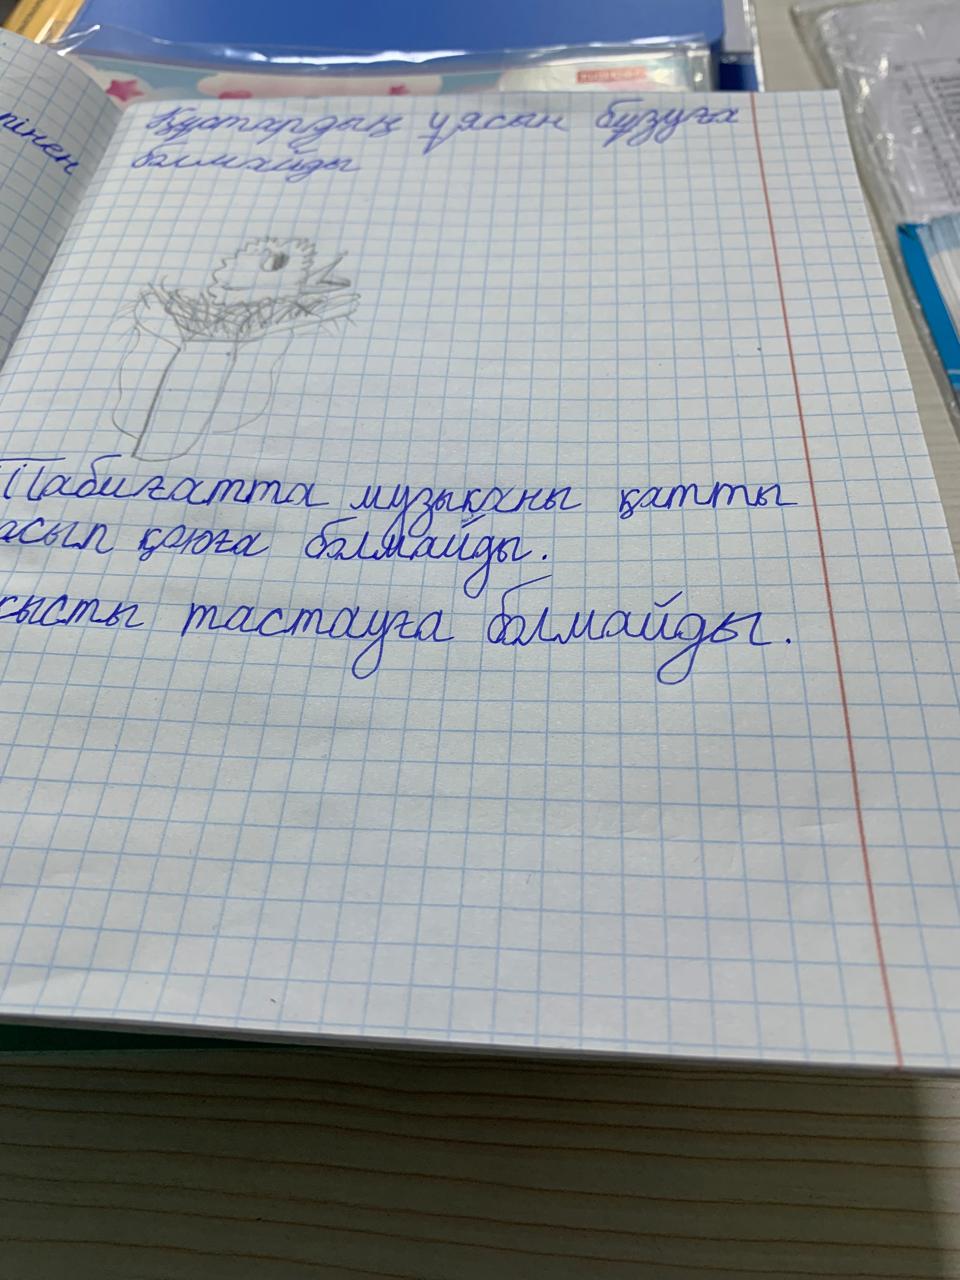 пінен
Құстардың ұясын бұзуға
болмайды
Табиғатта музыканы қатты
асып қоюға болмайды.
қысты тастауға болмайды.